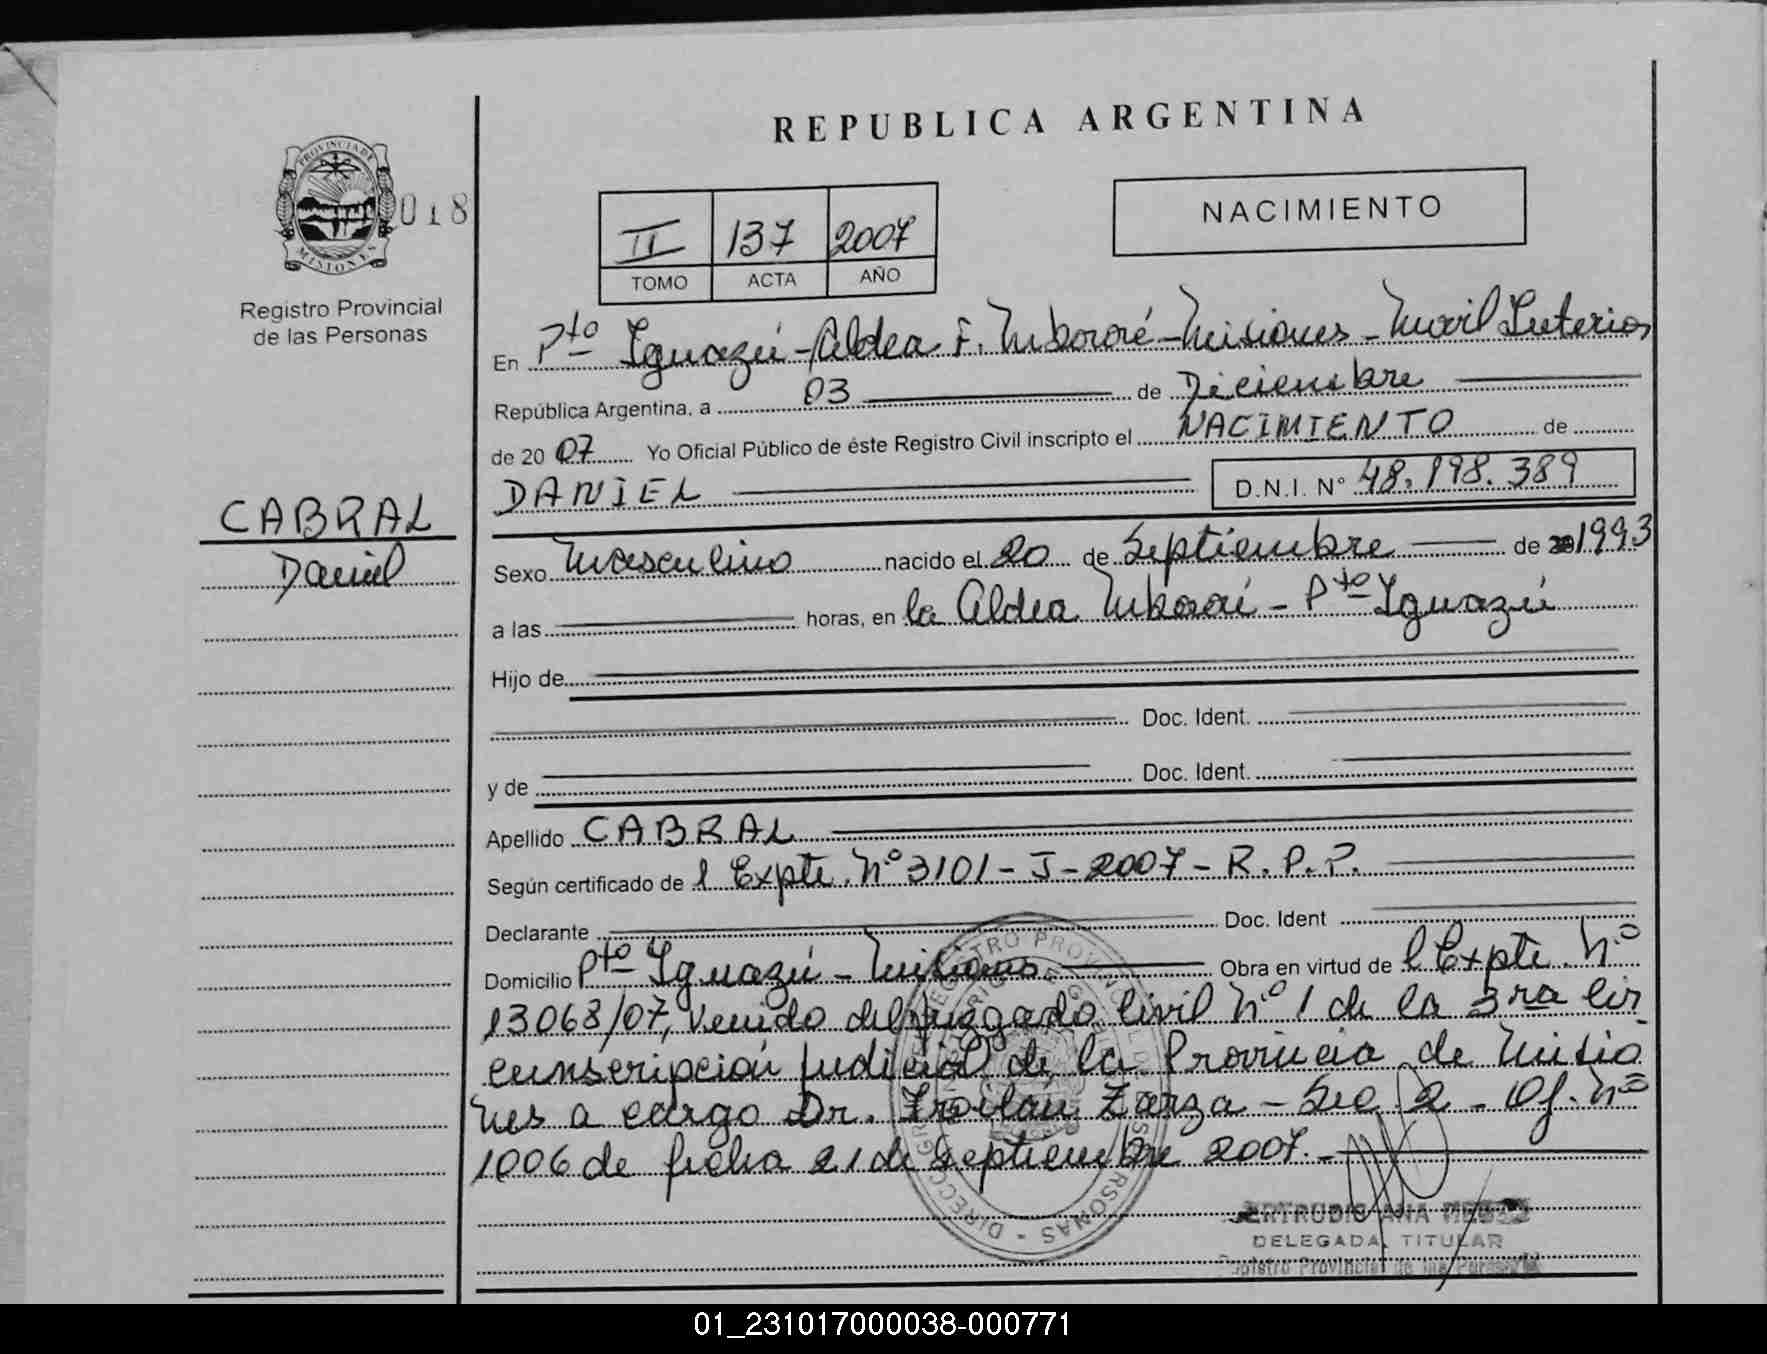 REPUBLICA ARGENTINA
PROVINCIA DE
MISIONES
018
Registro Provincial
de las Personas
II 137 2007
TOMO ACTA AÑO
NACIMIENTO
En Pto Iguazú - Aldea F. Mbororé - Misiones - Movil Interior,
República Argentina, a 03 de Diciembre
de 2007 Yo Oficial Público de éste Registro Civil inscripto el NACIMIENTO de
DANIEL D.N.I. N° 48.198.389
CABRAL
Daniel
Sexo Masculino nacido el 20 de Septiembre de 20 1993
a las horas, en la Aldea Mbororé - Pto Iguazú
Hijo de
Doc. Ident.
y de Doc. Ident.
Apellido CABRAL
Según certificado de l Expte. Nº 3101 - J - 2007 - R. P. P.
Declarante Doc. Ident
Domicilio Pto Iguazú - Misiones Obra en virtud de l Expte. Nº
13068/07, venido del Juzgado Civil Nº 1 de la 3ra Cir
cunscripción Judicial de la Provincia de Misio
nes a cargo Dr. Froilán Zarza - Sec. 2 - Of. Nº
1006 de fecha 21 de Septiembre 2007. -
ANA
DELEGADA TITULAR
Registro Provincial de las Personas
01_231017000038-000771